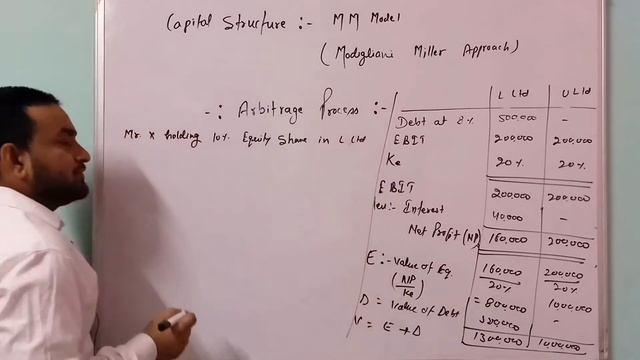 Capital Structure :- MM Model
(Modigliani Miller Approach)
-: Arbitrage Process :-
Mr. X holding 10% Equity Share in L Ltd
L Ltd U Ltd
Debt at 8% 500,000 -
EBIT 200,000 200,000
Ke 20% 20%
EBIT 200,000 200,000
Less:- Interest 40,000 -
Net Profit (NP) 160,000 200,000
E :- Value of Eq. 160,000 200,000
(NP/Ke) 20% 20%
= 800,000 1000,000
D = Value of Debt 500,000 -
V = E + D 1300,000 1000,000